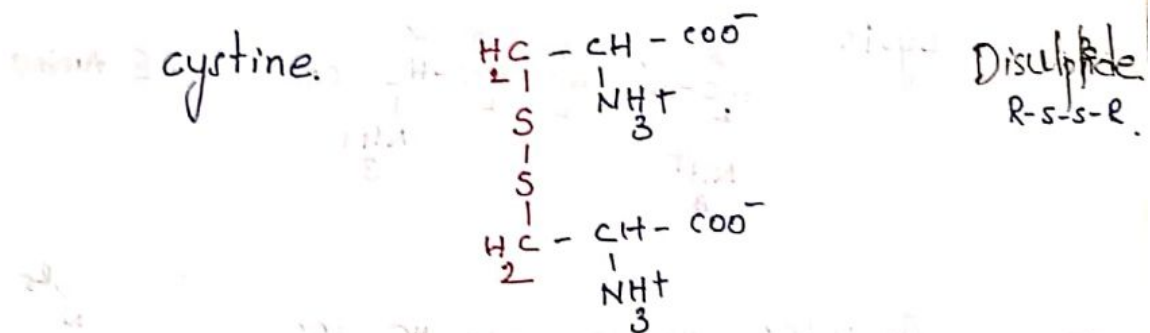 cystine.
H₂C - CH - COO⁻
NH₃⁺ .
S
S
H₂C - CH - COO⁻
NH₃⁺
Disulphide
R-S-S-R.